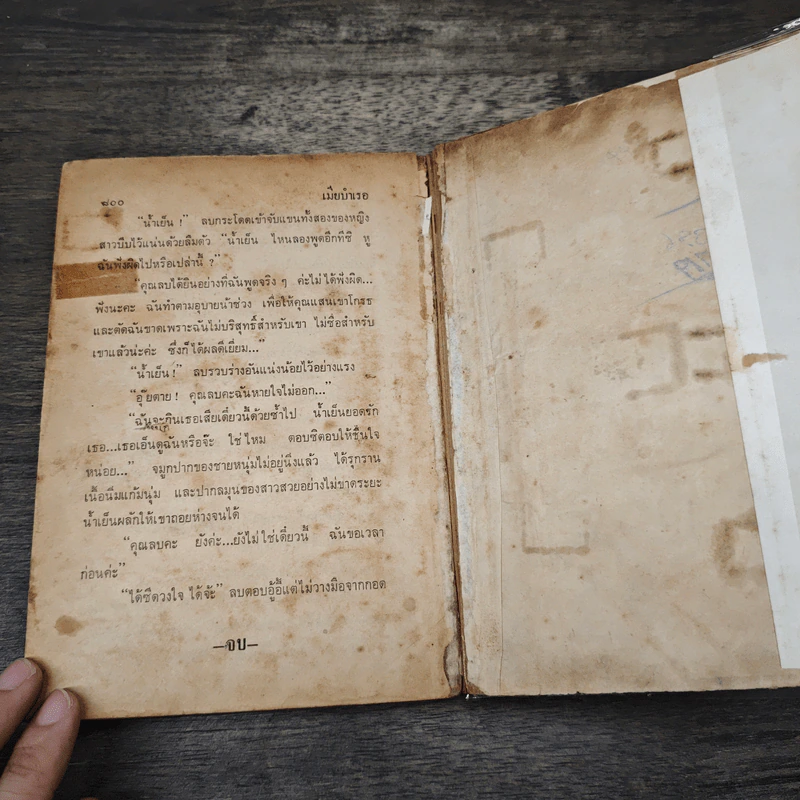 ๘๐๐ เมียบำเรอ
“น้ำเย็น !” ลบกระโดดเข้าจับแขนทั้งสองของหญิง
สาวบีบไว้แน่นด้วยลืมตัว “น้ำเย็น ไหนลองพูดอีกทีซิ หู
ฉันฟังผิดไปหรือเปล่านี่ ?”
“คุณลบได้ยินอย่างที่ฉันพูดจริง ๆ ค่ะไม่ได้ฟังผิด...
ฟังนะคะ ฉันทำตามอุบายน้าช่วง เพื่อให้คุณแสนเขาโกรธ
และตัดฉันขาดเพราะฉันไม่บริสุทธิ์สำหรับเขา ไม่ซื่อสำหรับ
เขาแล้วน่ะค่ะ ซึ่งก็ได้ผลดีเยี่ยม...”
“น้ำเย็น !” ลบรวบร่างอันแน่งน้อยไว้อย่างแรง
“อุ๊ยตาย ! คุณลบคะฉันหายใจไม่ออก...”
“ฉันจะกินเธอเสียเดี๋ยวนี้ด้วยซ้ำไป น้ำเย็นยอดรัก
เธอ...เธอเอ็นดูฉันหรือจ๊ะ ใช่ไหม ตอบซิตอบให้ชื่นใจ
หน่อย...” จมูกปากของชายหนุ่มไม่อยู่นิ่งแล้ว ได้รุกราน
เนื้อนิ่มแก้มนุ่ม และปากละมุนของสาวสวยอย่างไม่ขาดระยะ
น้ำเย็นผลักให้เขาถอยห่างจนได้
“คุณลบคะ ยังค่ะ...ยังไม่ใช่เดี๋ยวนี้ ฉันขอเวลา
ก่อนค่ะ”
“ได้ซีดวงใจ ได้จ้ะ” ลบตอบอู้อี้แต่ไม่วางมือจากกอด
—จบ—